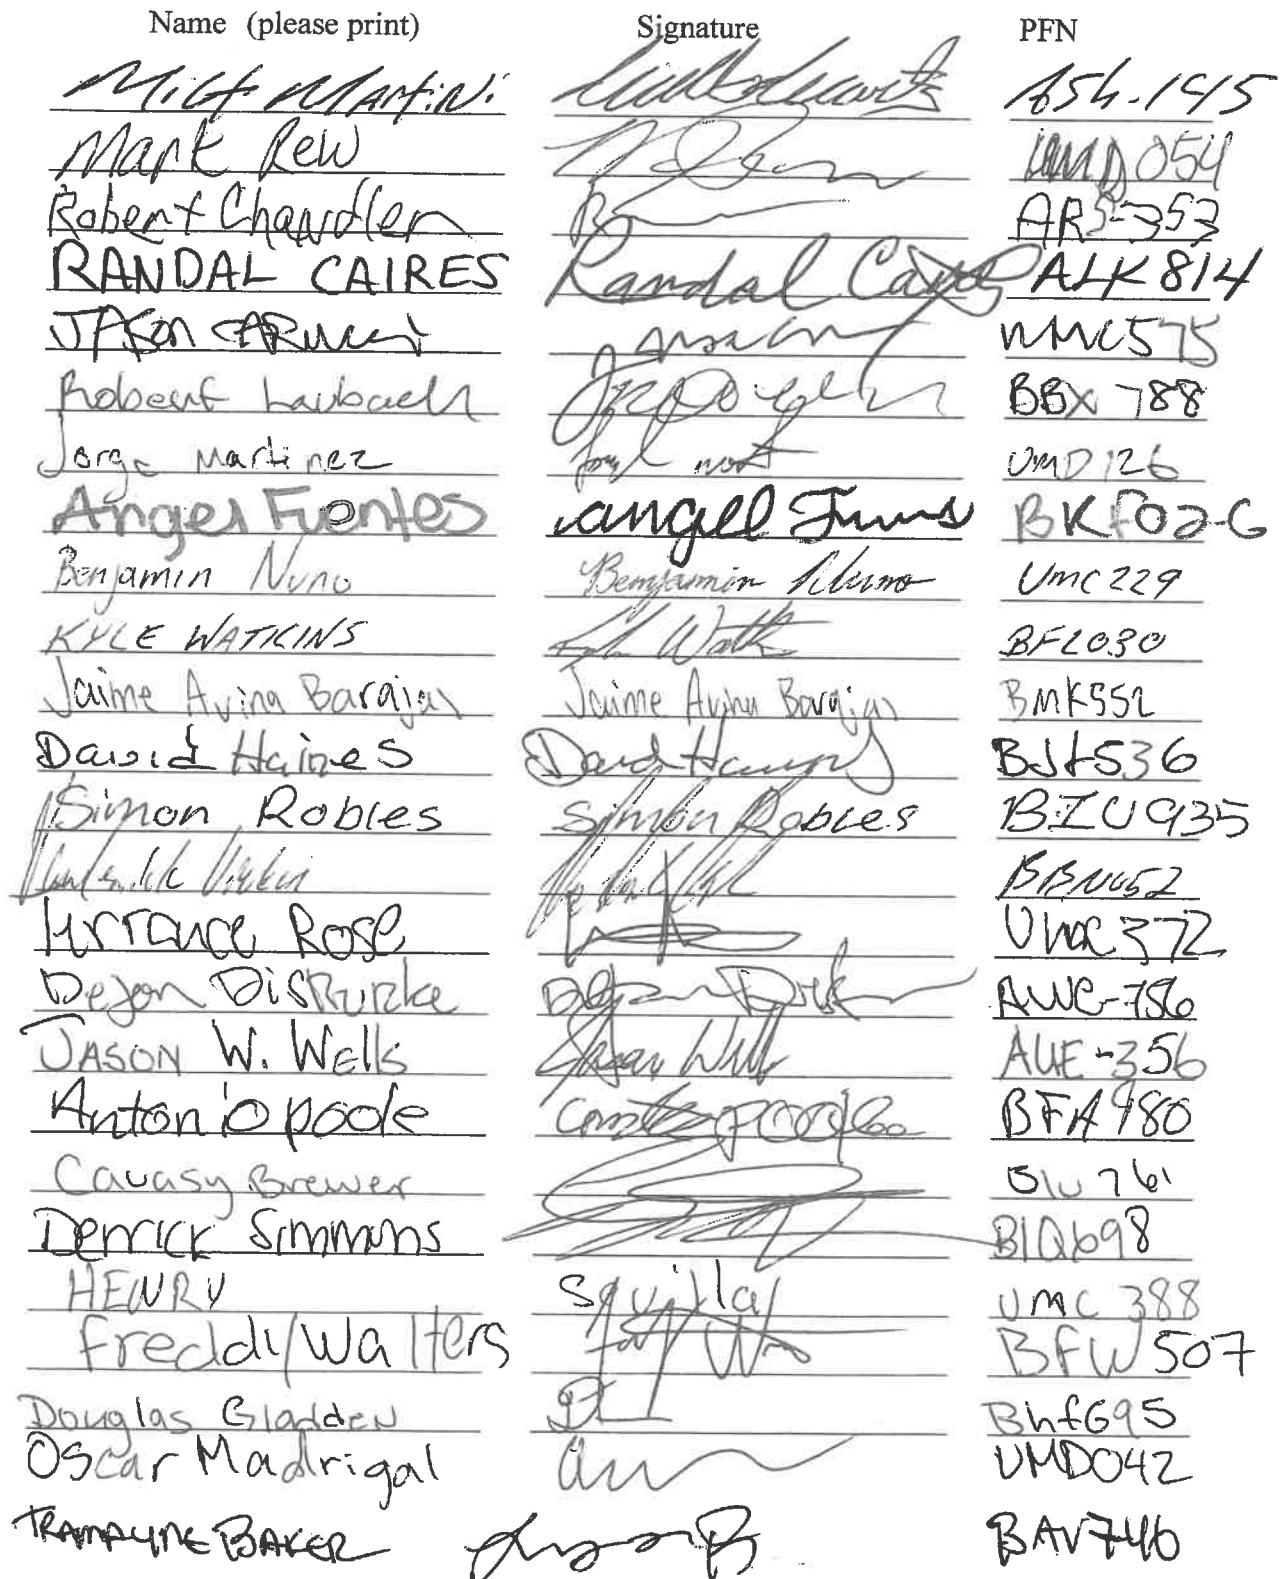 Name (please print) Signature PFN
Martini ASH-145
Mark Rew UMD054
Robert Chandler R ARS-353
RANDAL CAIRES Randal Caires ALK814
JASON UMC575
Robert Laubach BBX 788
Jorge Martinez UMD126
Angel Fuentes angel BKF02-6
Benjamin Nuno Benjamin Nuno UMC229
KYLE WATKINS BFL030
Jaime Avina Barajas Jaime Avina Barajas BMK552
David Haines David BJL536
Simon Robles Simon Robles BIU935
BBN652
Terrance Rose UMC372
Dejon AWC-756
JASON W. WELLS Jason Wells AUE-356
Antonio poole poole BFA980
Cavasy Brewer 761
Derrick Simmons BIQ698
HENRY Squilla UMC 388
Freddy Walters BFW507
Douglas Gladden D Bhf695
Oscar Madrigal UMD042
BAKER B BAV746